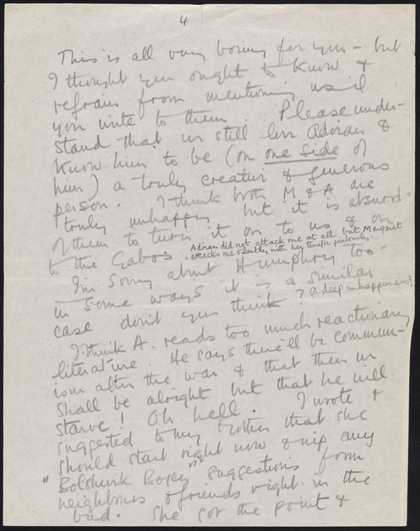 4
This is all very boring for you – but
I thought you ought to know &
refrain from mentioning us if
you write to them. Please under-
stand that we still love Adrian &
know him to be (on one side of
him) a truly creative & generous
person. I think both M & A are
truly unhappy but it is absurd
of them to turn it on to us & on
to the Gabos.
Adrian did not attack me at all but Margaret
attacks me & Barbara with her
I'm sorry about Humphrey too –
in some ways it is a similar
case don't you think? (a deep unhappiness).
I think A. reads too much reactionary
literature. He says there'll be commun-
ism after the war & that then we
shall be alright but that he will
starve! Oh hell. I wrote &
suggested to my mother that she
should start right now & nip any
"Bolshevik Bogey" suggestions from
neighbours & friends right in the
bud. She got the point &